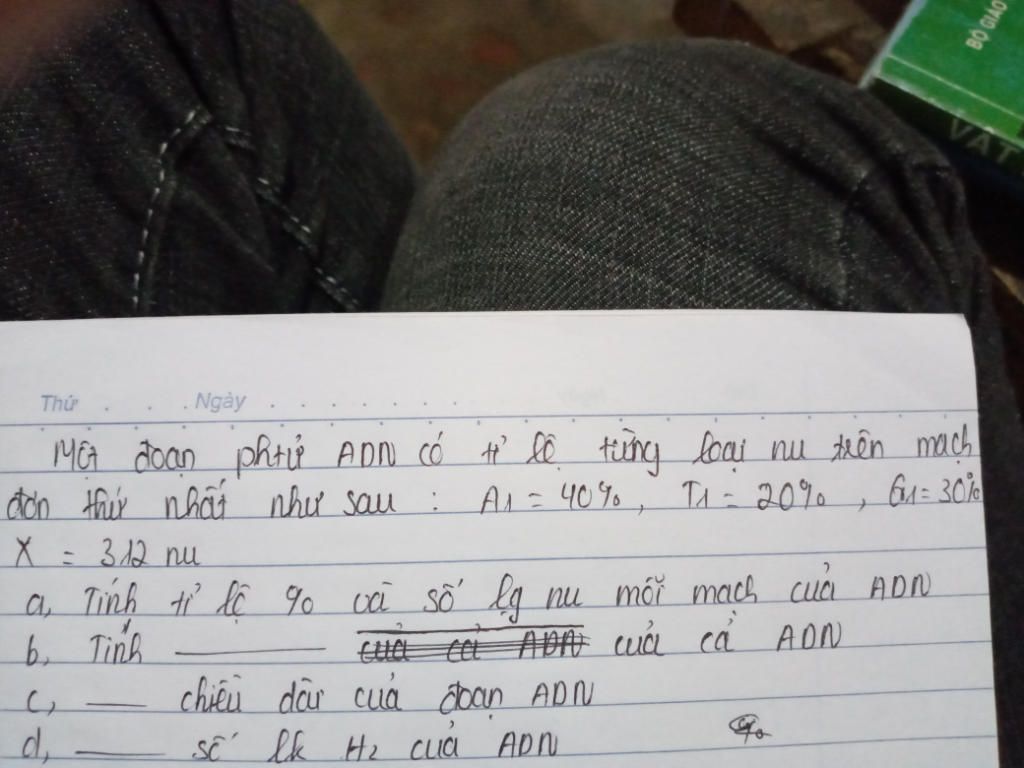 BỘ GIÁO
VAT
Thứ . . . . Ngày . . . . . . . . .
Một đoạn phtử ADN có tỉ lệ từng loại nu trên mạch
đơn thứ nhất như sau : A1 = 40%, T1 = 20%, G1 = 30%
X = 312 nu
a, Tính tỉ lệ % và số lg nu mỗi mạch của ADN
b, Tính ——— của cả ADN của cả ADN
c, —— chiều dài của đoạn ADN
d, ——— số lk H2 của ADN